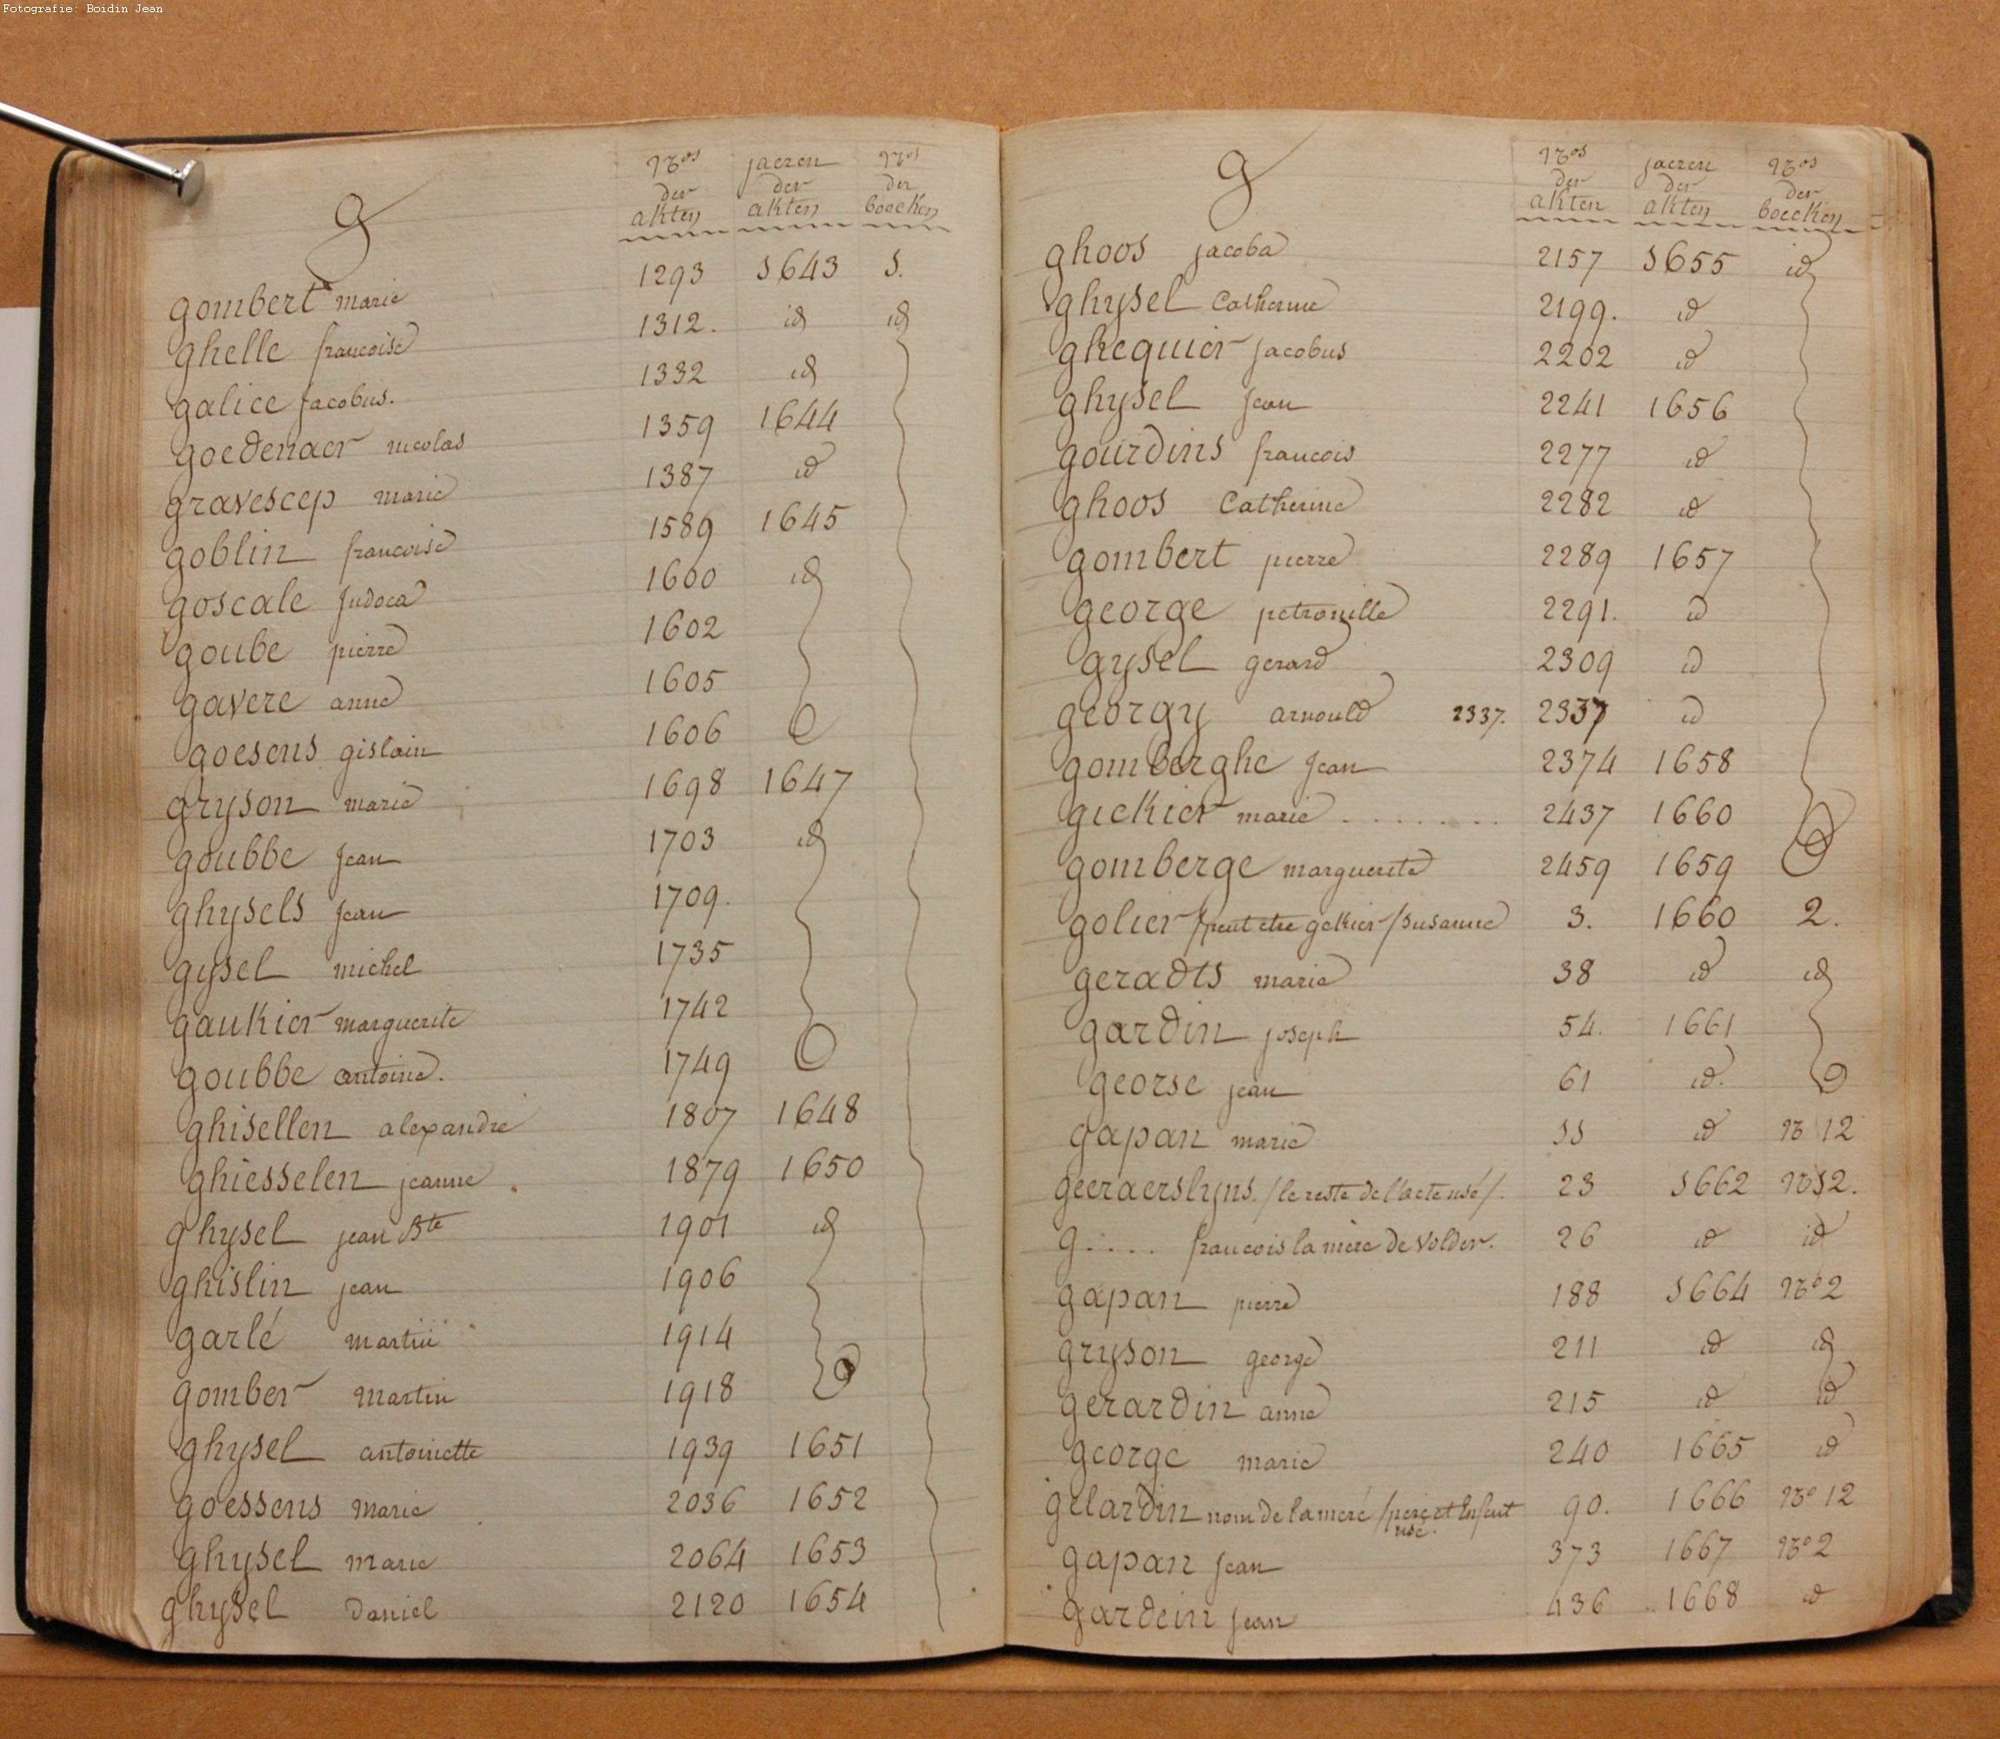 Fotografie: Boidin Jean
g
nros der akten jaeren der akten nros der boecken
gombert marie 1293 1643 1.
ghelle francoise 1312. id id
galice jacobus. 1332 id
goedenaer nicolas 1359 1644
gravescep marie 1387 id
goblin francoise 1589 1645
goscale judoca 1600 id
goube pierre 1602
gavere anne 1605
goesens gislain 1606
gryson marie 1698 1647
goubbe jean 1703 id
ghysels jean 1709.
gysel michel 1735
gaukier marguerite 1742
goubbe antoine. 1749
ghisellen alexandre 1807 1648
ghiesselen jeanne 1879 1650
ghysel jean Bte 1901 id
ghislin jean 1906
garlé martin 1914
gomber martin 1918
ghysel antoinette 1939 1651
goessens marie 2036 1652
ghysel marie 2064 1653
ghysel Daniel 2120 1654
g
nros der akten jaeren der akten nros der boecken
ghoos jacoba 2157 1655 id
ghysel Catherine 2199. id
ghequier jacobus 2202 id
ghysel jean 2241 1656
gourdins francois 2277 id
ghoos Catherine 2282 id
gombert pierre 2289 1657
george petronille 2291. id
gysel gerard 2309 id
georgy arnould 2337. 2337 id
gomberghe jean 2374 1658
gickier marie ........ 2437 1660
gomberge marguerite 2459 1659
golier /peut etre gekier/ susanne 3. 1660 2.
geradts marie 38 id id
gardin joseph 54. 1661
georse jean 61 id.
gapan marie 11 id no 12
geeraerslyns. /le reste de l'acte usé/. 23 1662 no 12.
g.... francois la mère de volder. 26 id id
gapan pierre 188 1664 no 2
gryson george 211 id id
gerardin anne 215 id id
george marie 240 1665 id
gelardin nom de la mere /père et enfent usé. 90. 1666 no 12
gapan jean 373 1667 no 2
gardein jean 436 1668 id